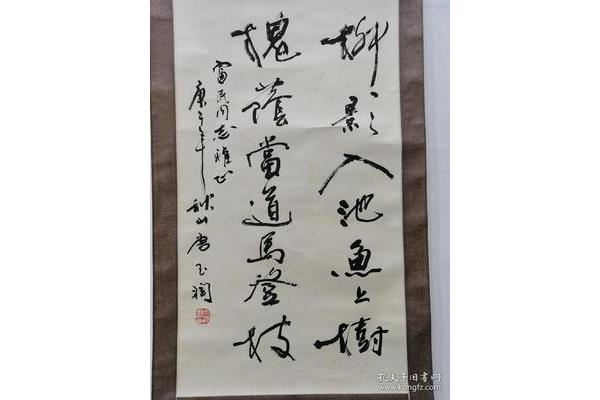 柳影入池魚上樹
槐蔭當道馬登枝
富民同志雅正
庚年 山唐玉潤
孔夫子旧书网
www.kongfz.com